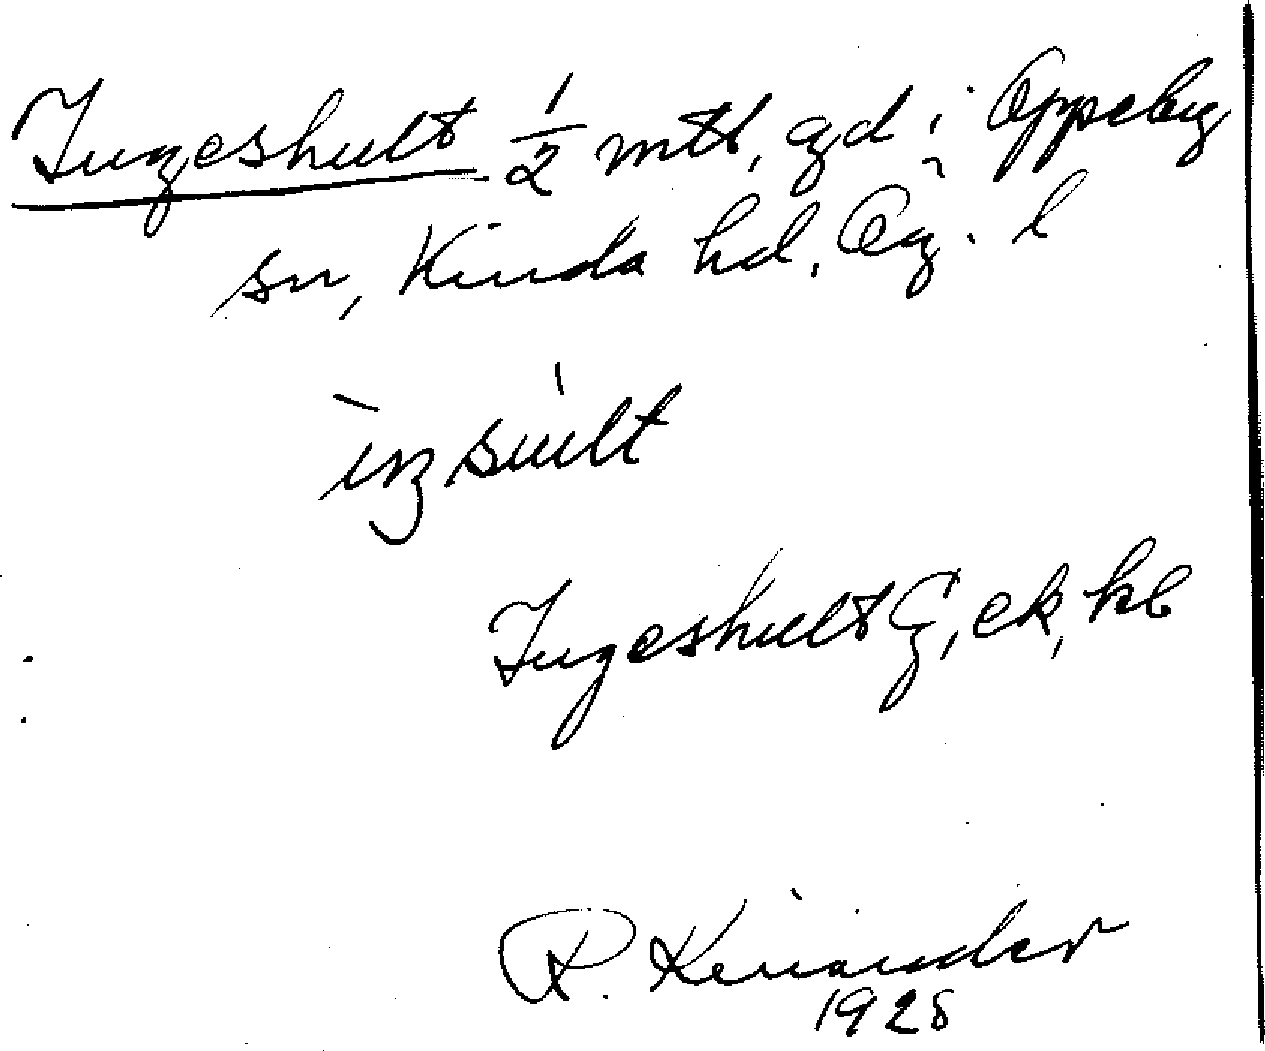 Ingeshult 1/2 mtl, gd i Oppeby
sn, Kinda hd, Ög. l
ìŋsúlt
Ingeshult G, ek, kb
R. Kinander
1928